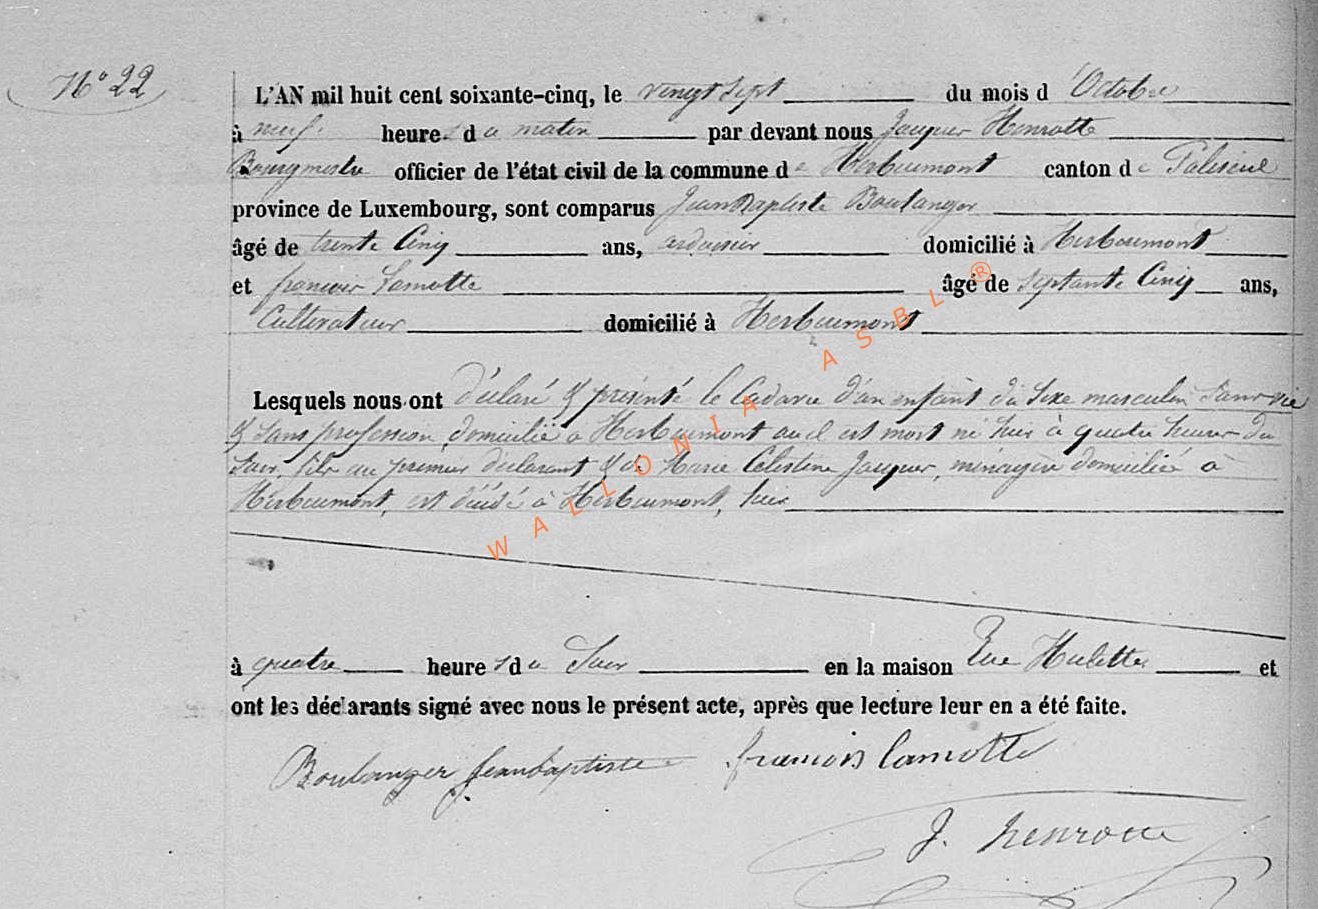 N° 22
L'AN mil huit cent soixante-cinq, le vingt sept du mois d'Octobre
à neuf heures du matin par devant nous Jacques Henrotte
Bourgmestre officier de l'état civil de la commune de Herbeumont canton de Paliseul
province de Luxembourg, sont comparus Jean Baptiste Boulanger
âgé de trente Cinq ans, ardoisier domicilié à Herbeumont
et françois Lamotte âgé de septante Cinq ans,
Cultivateur domicilié à Herbeumont
Lesquels nous ont déclaré & présenté le Cadavre d'un enfant du sexe masculin sans vie
& sans profession domicilié à Herbeumont est mort né hier à quatre heures du
soir, fils du premier déclarant & de Marie Célestine Jacques, ménagère domiciliée à
Herbeumont, est décédé à Herbeumont, hier
à quatre heures du Soir en la maison Rue Hulette et
ont les déclarants signé avec nous le présent acte, après que lecture leur en a été faite.
Boulanger Jeanbaptiste françois lamotte
J. henrotte
WALLONIA ASBL ®